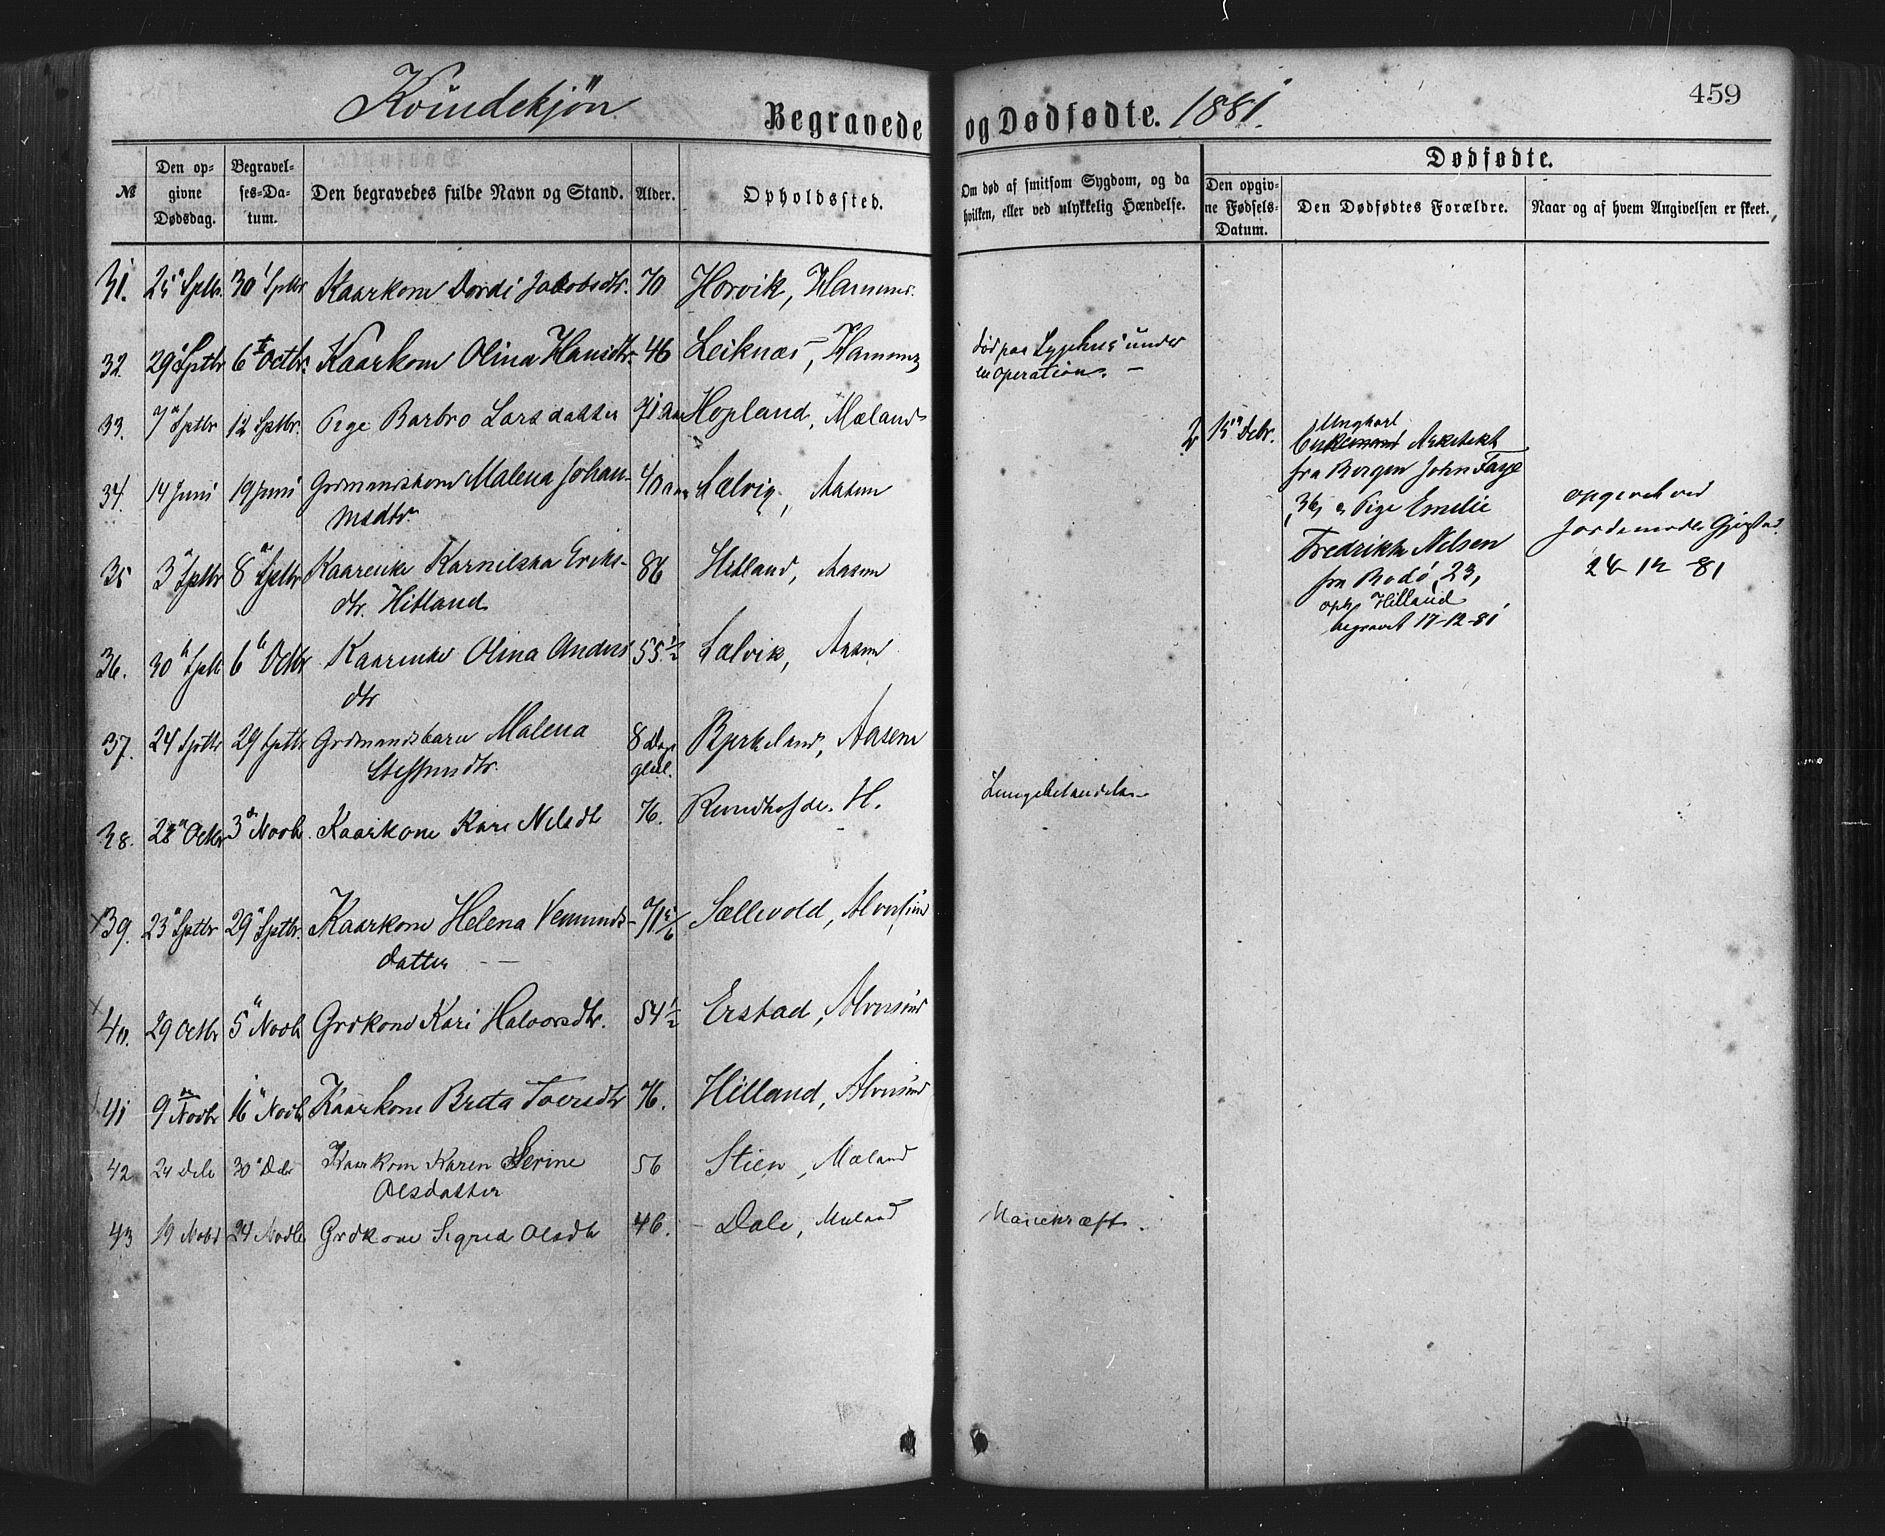 459
Kvindekjøn
Begravede og Dødfødte. 1881.
№
Den opgivne Dødsdag.
Begravelses-Datum.
Den begravedes fulde Navn og Stand.
Alder.
Opholdssted.
Om død af smitsom Sygdom, og da hvilken, eller ved ulykkelig Hændelse.
Dødfødte.
Den opgivne Fødsels-Datum.
Den Dødfødtes Forældre.
Naar og af hvem Angivelsen er skeet.
31. 25 Sptbr. 30 Sptbr Kaarkone Dordi Jacobsdtr. 70 Horvik, Hammer.
32. 29 Sptbr 6 Octbr. Kaarkone Olina Hansdtr. 46 Leiknæs, Hammer død paa Sygehus under
en Operation. —
33. 7 Sptbr 12 Sptbr. Pige Barbro Larsdatter 71 aar Hopland, Mæland
34. 14 Juni 19 Juni Grdmandskone Malena Johan- 40 aar Sælvig, Aasene
nsdtr.
35 3 Sptbr 8 Sptbr Kaarenke Karnilska Eriks- 86 Hilland, Aasene
dtr. Hilland
36. 30 Sptb 6 Octbr Kaarenke Olina Anders 55½ Sælvik, Aasene
dtr
37. 24 Sptbr 29 Sptbr Grdmandsbarn Malena 8 Dage Byrkeland, Aasene
Steffensdtr. gml.
38. 28 Octbr 3 Novbr. Kaarkone Kari Nilsdtr 76. Rundhofde. H. Lungebetændelse
39. 23 Sptbr 29 Sptbr. Kaarkone Helena Vemunds- 71 5/6 Sællevold, Alversund
datter — —
40. 29 Octbr 5 Novbr Grdkone Kari Halvorsdtr. 54½ Erstad, Alversund
41 9 Novbr 16 Novbr Kaarkone Brita Iversdtr 76. Hilland, Alversund
42 24 Debr 30 Debr Kaarkone Karen Serine 56 Stien, Mæland
Olsdatter
43 19 Novbr 24 Novbr Grdkone Sigrid Olsdtr 46. Dale, Mæland
2 15 Debr. Ungkarl
Enkemand Arkitekt
fra Bergen John Faye
36, og Pige Emelie
Fredrikke Nilsen
fra Bodø, 23,
oph. Hilland
begravet 17-12-81
opgivet ved
Jordemoder
24-12-81